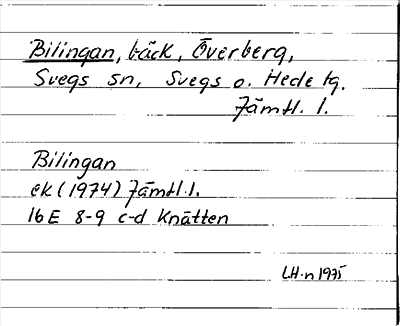 Bilingan, bäck, Överberg,
Svegs sn, Svegs o. Hede tg.
Jämtl. l.
Bilingan
ek (1974) Jämtl. l.
16E 8-9 c-d Knätten
LH-n 1975